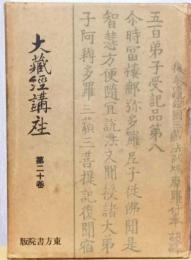 五百弟子受記品第八
尒時富樓那弥多羅尼子從佛聞是
智慧方便隨宜說法又聞授諸大弟
子阿耨多羅三藐三菩提記復聞宿
大藏經講座
第二十卷
東方書院版